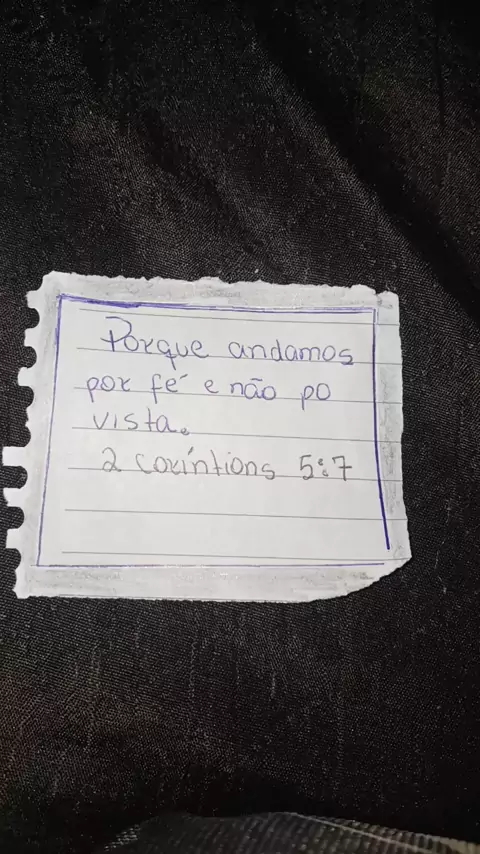 Porque andamos
por fé e não po
vista.
2 coríntions 5:7